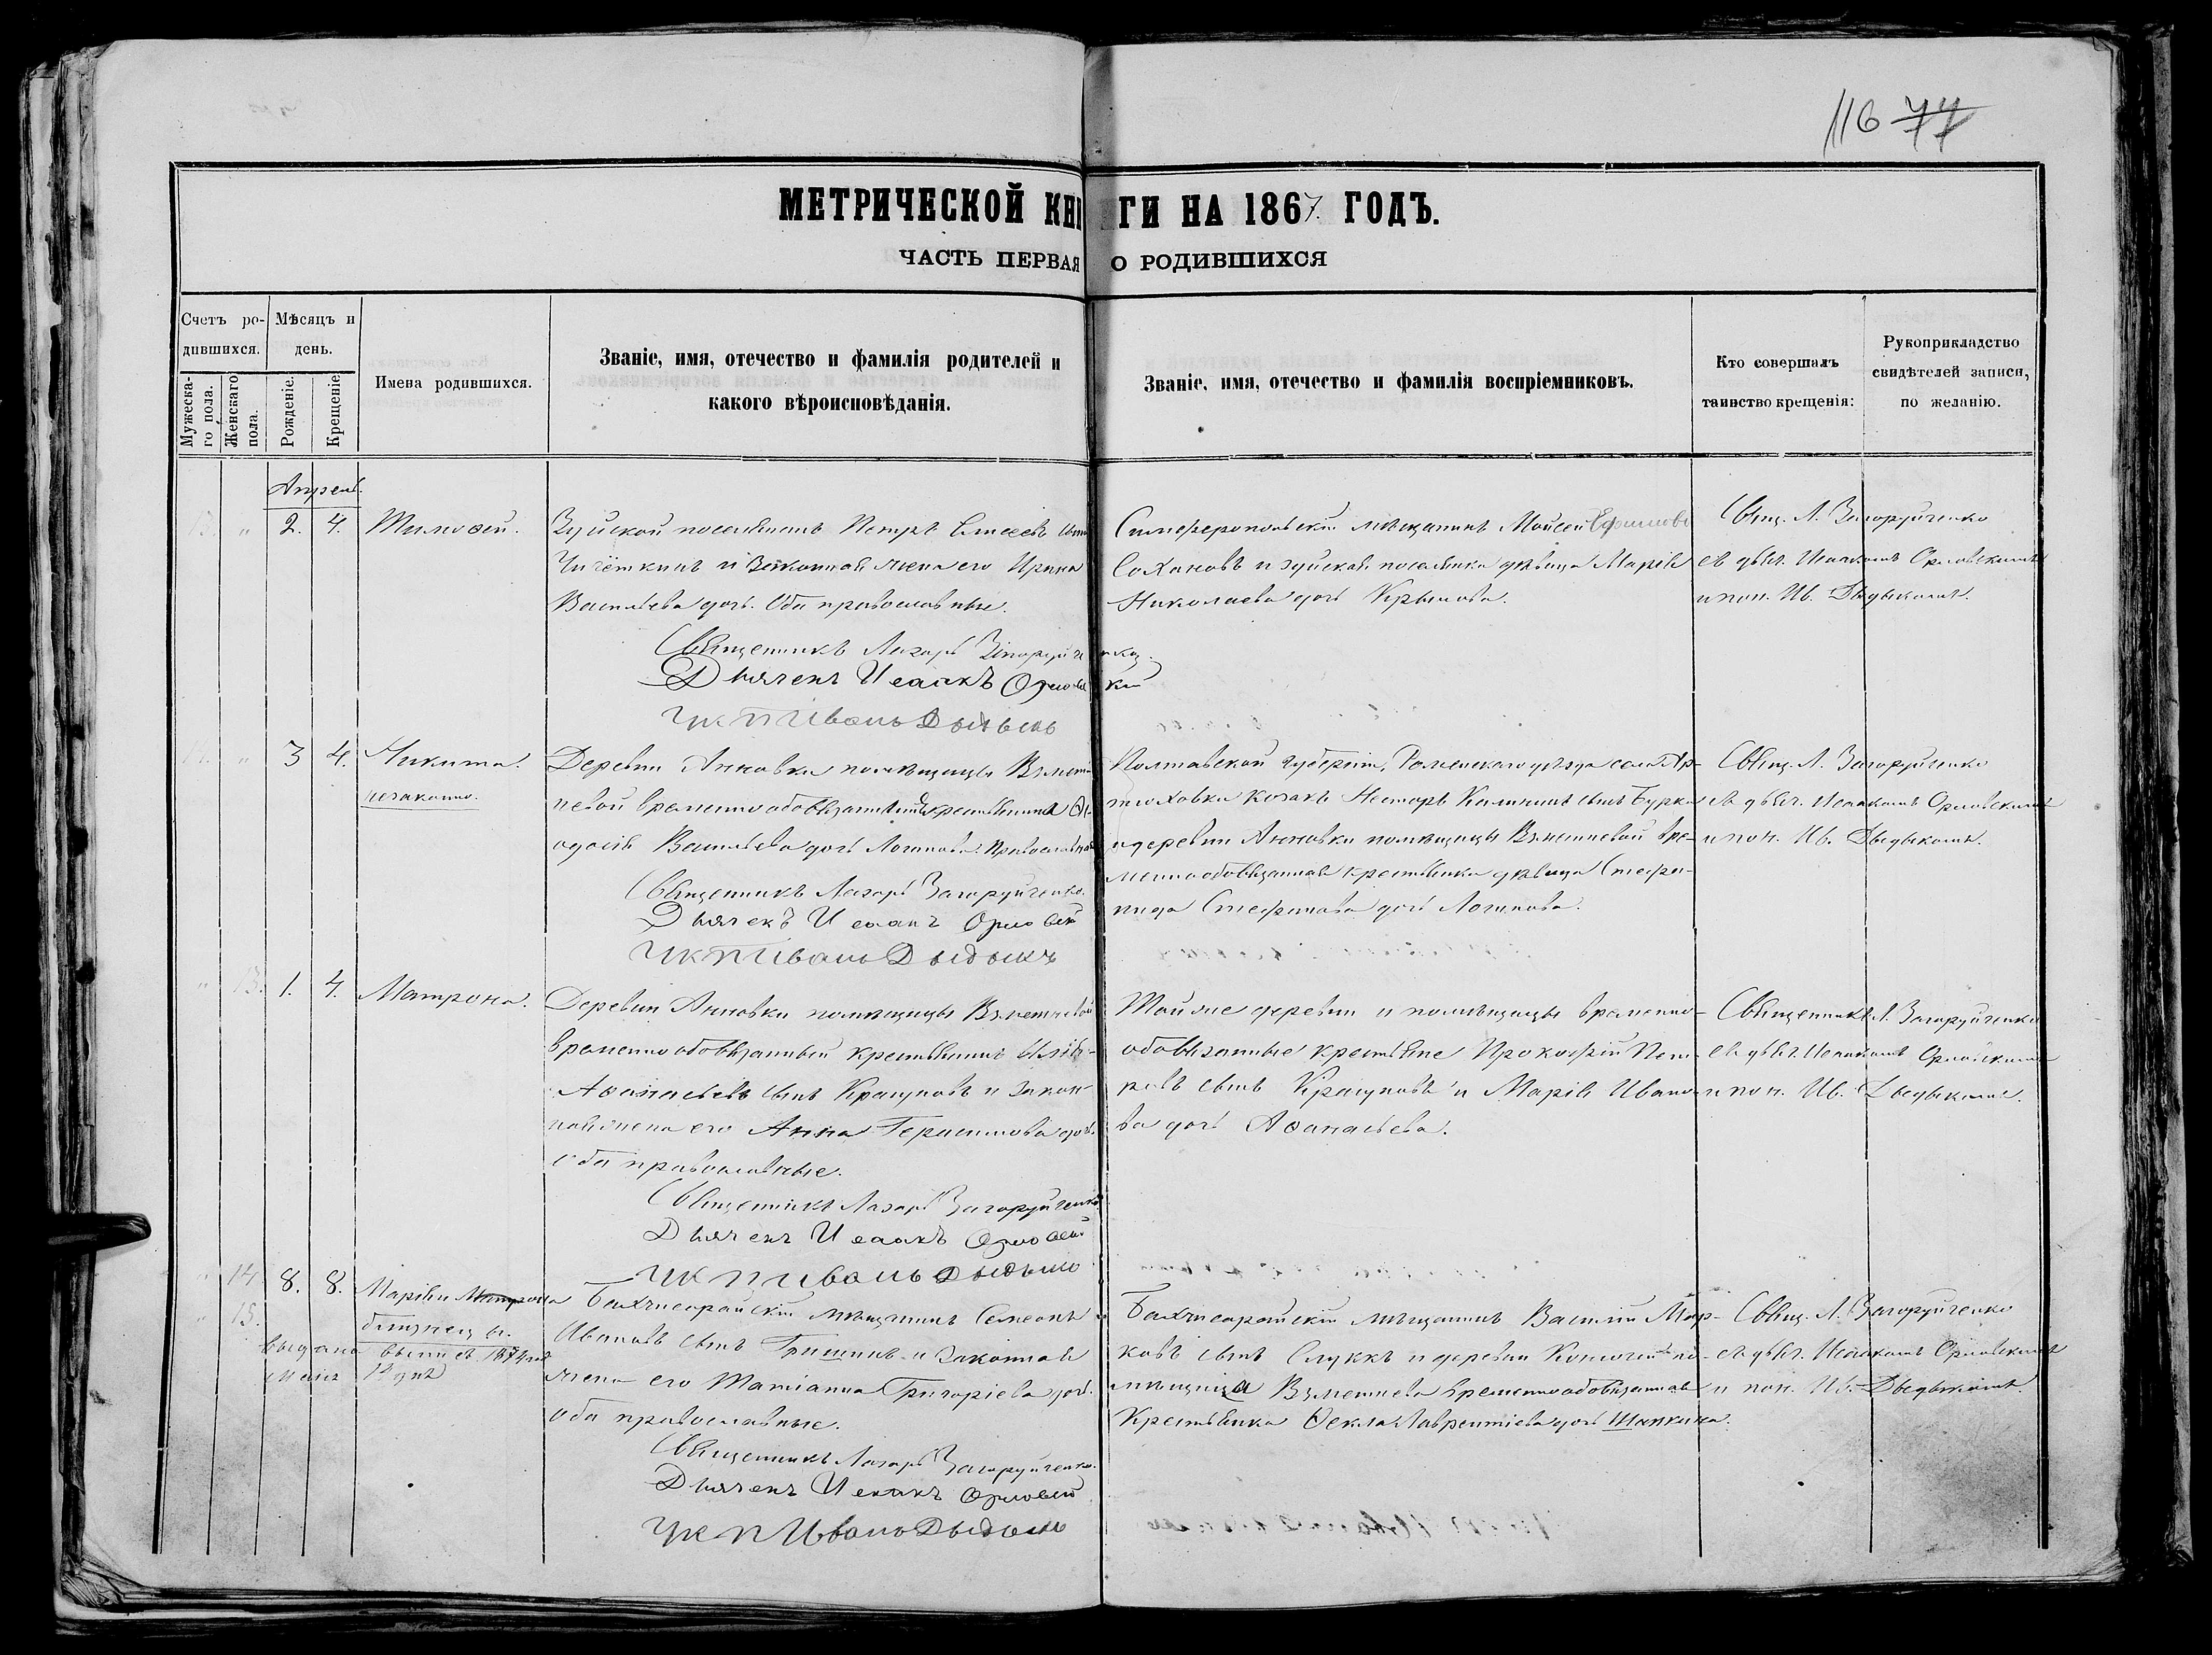 116 77
МЕТРИЧЕСКОЙ КНИГИ НА 1867. ГОДЪ.
ЧАСТЬ ПЕРВАЯ О РОДИВШИХСЯ
Счетъ ро-
дившихся.
Мужеска-
го пола.
Женскаго
пола.
Мѣсяцъ и
день.
Рожденіе.
Крещеніе
Имена родившихся.
Званіе, имя, отечество и фамилія родителей и
какого вѣроисповѣданія.
Званіе, имя, отечество и фамилія воспріемниковъ.
Кто совершалъ
таинство крещенія:
Рукоприкладство
свидѣтелей записи,
по желанію.
Апрель.
13. " 2. 4. Тимоѳей.
Зуйской поселянинъ Петръ Елисеевъ сынъ
и законная жена его Ирина
Васильева дочь. Оба православные.
Священникъ Лазарь Загоруйченко.
Дьячекъ Исаакъ Орловскій
Иванъ Дыдыкъ
Симферопольскій мѣщанинъ Мойсей
Сохановъ и зуйская поселянка дѣвица Марія
Николаева дочь Крымова.
Свящ. Л. Загоруйченко
съ дьяч. Исаакомъ Орловскимъ
и пон. Ив. Дыдыкомъ.
14. " 3 4. Никита.
незаконно.
Деревни Анновки помѣщицы
временнообовязанной крестьянки Ѳе-
одосія Васильева дочь Логинова. Православная
Священникъ Лазарь Загоруйченко.
Дьячекъ Исаакъ Орловскій
Иванъ Дыдыкъ
Полтавской губерніи, Роменскаго уѣзда села Ар-
тюховки козакъ Несторъ сынъ Бурка
и деревни Анновки помѣщицы вре-
меннообовязанная крестьянка дѣвица Стефа-
нида Стефанова дочь Логинова.
Свящ. Л. Загоруйченко
съ дьяч. Исаакомъ Орловскимъ
и пон. Ив. Дыдыкомъ.
" 13. 1. 4. Матрона.
Деревни Анновки помѣщицы
временнообовязанный крестьянинъ Илія
Аѳанасьевъ сынъ Крагуновъ и закон-
ная жена его Анна Герасимова дочь.
оба православные.
Священникъ Лазарь Загоруйченко
Дьячекъ Исаакъ Орловскій
Иванъ Дыдыкъ
Той же деревни и помѣщицы временно-
обовязанные крестьяне Прокофій Пет-
ровъ сынъ Крагуновъ и Марія Ивано-
ва дочь Аѳанасьева.
Священникъ Л. Загоруйченко
съ дьяч. Исаакомъ Орловскимъ
и пон. Ив. Дыдыкомъ.
" 14. 8. 8. Марія и Матрона
" 15. близнецы.
Выдана выпись 1874 года
14 дня
Бахчисарайскій мѣщанинъ Семеонъ
Ивановъ сынъ Гришинъ и законная
жена его Татіанна Григоріева дочь.
оба православные.
Священникъ Лазарь Загоруйченко.
Дьячекъ Исаакъ Орловскій
Иванъ Дыдыкъ
Бахчисарайскій мѣщанинъ Василій Мар-
ковъ сынъ и деревни по-
мѣщица временнообовязанная
крестьянка Ѳекла Лаврентіева дочь Шапкина.
Свящ. Л. Загоруйченко
съ дьяч. Исаакомъ Орловскимъ
и пон. Ив. Дыдыкомъ.